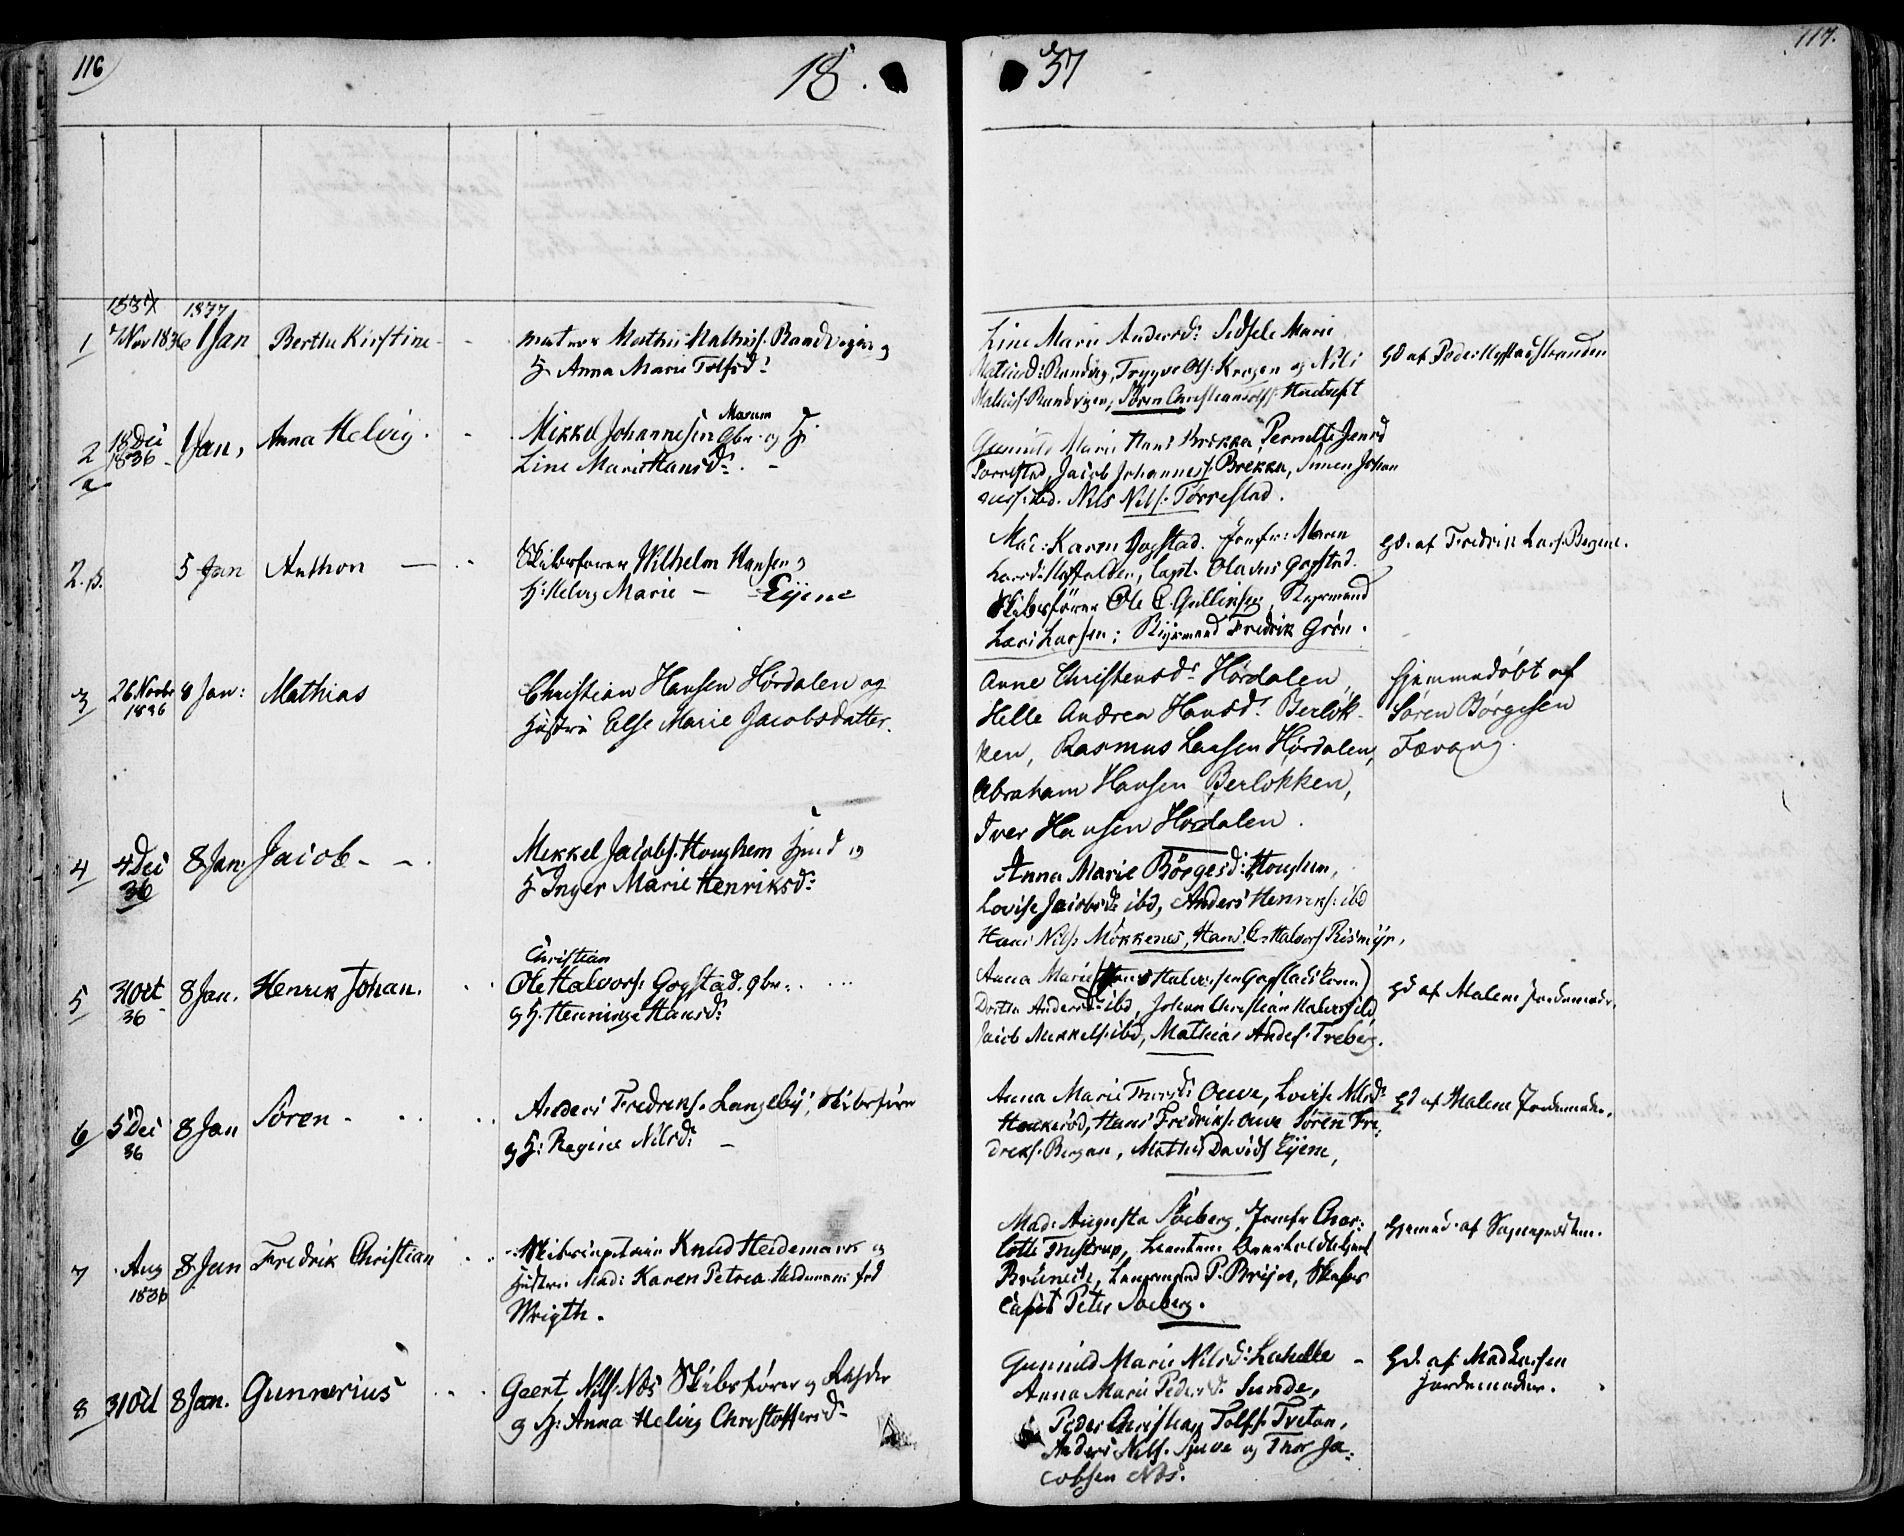 116
18
37
117.
1837
1837
1 7 Nov 1836 1 Jan Berthe Kirstine -
matros Mathis Mathiss. Randvigen og
H Anna Marie Tolfsd:
Line Marie Andersd: Sidsele Marie
Matiisd: Randvig, Trygve Ols: Kragen og Nils
Matiiss. Randvigen, Søren Christian
Hd af Peder
2 a 18 Dec 1836 1 Jan, Anna Helvig.
Marum
Mikkel Johannesen Gbr. og H:
Line Marie Hansd: . -
Gunild Marie Hans Brekka, Pernille Jensd
Torrestad, Jacob Johanness: Brekka, Simen Johan
ness: ibd. Nils Nils: Torrestad.
2. b. 5 Jan Anthon —
Skibsfører Wilhelm Hansen og
H: Helvig Marie - Eijene
Mad: Karen Gogstad. Jomfr: Maren
Capt. Olavus Gogstad.
Skibsfører Ole C. Gullinsen, Styrmand
Lars Larsen; Styrmand Fredrik Grøn.
Hd. af Fredrik Lars: Bergene.
3 26 Novbr 1836 8 Jan: Mathias
Christian Hansen Hørdalen og
Hustru Else Marie Jacobsdatter.
Anne Christensdr Hørdalen,
Helle Andrea Hansdr. Berløk-
ken, Rasmus Larsen Hørdalen,
Abraham Hansen Berløkken,
Iver Hansen Hørdalen.
Hjemmedøbt af
Søren Børgesen
Færvang.
4 4 Dec 36 8 Jan: Jacob - -.
Mikkel Jacobs: Houghem Huusmd og
H Inger Marie Henriksd:
Anna Marie Børgesd: Houghem,
Lovise Jacobsd: ibd, Anders Henriks: ibd
Hans Nils: Møkkenes, Hans C. Halvors Rismyr,
5 31 Oct 36 8 Jan. Henrik Johan.
Christian
Ole Halvors: Gogstad. gbr..
og H. Henninge Hansd:
Anna Marie (Hans Halvorsen Gogstads Kone)
Dorthe Andersd: ibd, Johan Christian Halvors: ibd,
Jacob Mikkels: ibd, Mathias Anders: Freberg.
Hd af Malene Jordemoder.
6 5 Dec 36 8 Jan Søren -
Anders Fredriks. Langebÿ, Skibsfører
og H: Regine Nilsd: -
Anna Marie Thorsd: Ouve, Lovise Nilsd:
Haukerød, Hans Fredriks: Ouve Søren Fre:
driks. Bergan, Mathis Davids Eijene,
Hd af Malene Jordemoder.
7 Aug 1836 8 Jan Fredrik Christian
Skibscapitain Knud Heidemark og
Hustru Mad: Karen Petrea Heidemark fød
Wrigth.
Mad: Augusta Søeberg, Jomfr Char:
lotte Frustrup,
P. Bryn, Skibs
Capit Peter Søeberg.
Hjemmed. af Sognepræsten.
8 31 Oct 8 Jan. Gunnerius
Geert Nils. Næs Skibsfører og
og H: Anna Helvig Christoffersd:
Gunild Marie Nilsd: Lahelle -
Anna Marie Pedersd. Sunde,
Peder Christian Tolfs: Tveten,
Anders Nils. Ouve og Thor Ja:
cobsen Næs.
Hd. af Mad Larsen
Jordemoder.